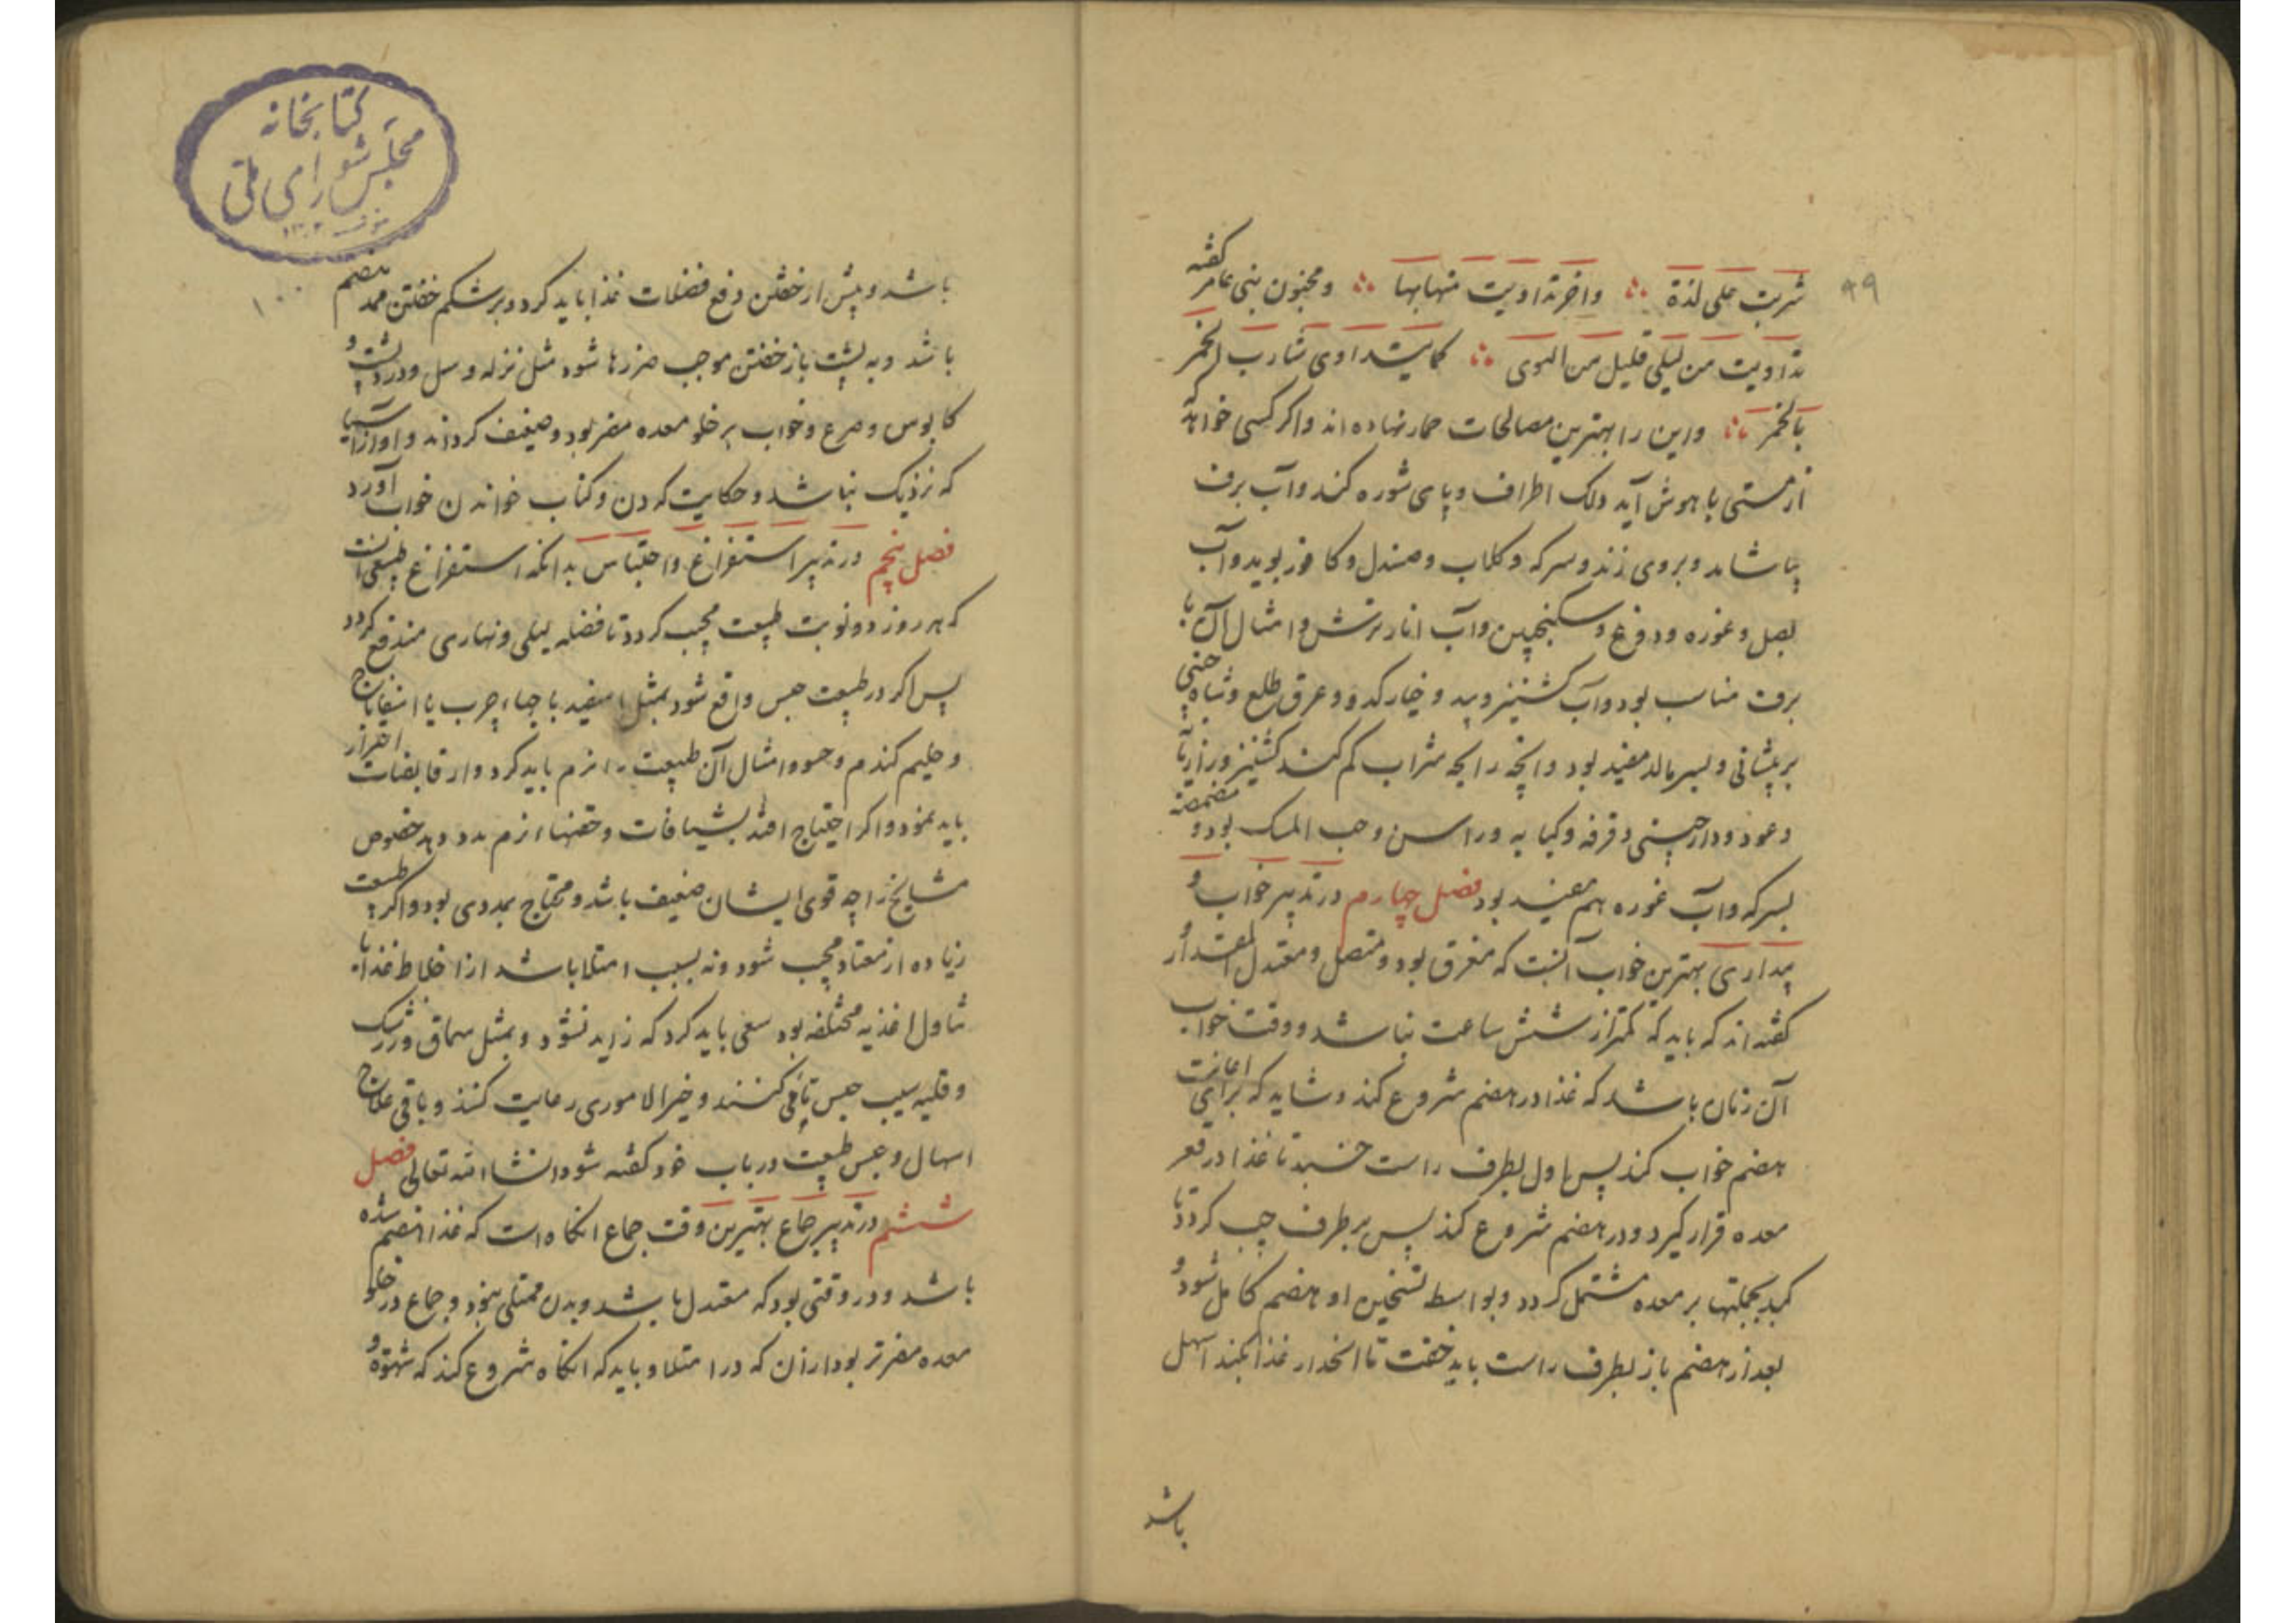 ۹۹
شربت علی لذة ؞ واخر تداویت منها بها ؞ و مجنون بنی عامر گفته
تداویت من لیلی قلیل من الهوی ؞ کما یتداوی شارب الخمر
بالخمر ؞ واین را بهترین مصالحات خمار نهاده اند واکر کسی خواهد که
از مستی با هوش آید دلک اطراف و پای شوره کند وآب برف
بپاشاند و بروی زند و سرکه و کلاب و صندل و کافور بوید وآب
بصل و غوره و دوغ و سکنجبین وآب انار ترش و امثال آن با
برف مناسب بود وآب کشنیز و بید و خیار کدو و عرق طلع و شاه
بر پیشانی و بسر مالد مفید بود وانچه رایحه شراب کم کند کشنیز و
وعود ودارچینی و قرفه و کبابه وراسن وحب المسک بود و مضمضه
بسرکه وآب غوره هم مفید بود فصل چهارم در تدبیر خواب و
بیداری بهترین خواب آنست که مغرق بود و متصل و معتدل المقدار و
کفته اند که باید که کمتر از شش ساعت نباشد و وقت خواب
آن زمان باشد که غذا در هضم شروع کند وشاید که برای اعانت
هضم خواب کند پس باول بطرف راست خسبد تا غذا در قعر
معده قرار کیرد و در هضم شروع کند پس بر طرف چپ کردد تا
کبد بجملتها بر معده مشتمل کردد وبواسطه تسخین او هضم کامل شود و
بعد از هضم باز بطرف راست باید خفت تا انحدار غذا بکبد اسهل
باشد
کتابخانه
مجلس شورای ملی
۱۰۰
باشد و پیش از خفتن دفع فضلات غذا باید کرد و بر شکم خفتن ممد هضم
باشد وبه پشت باز خفتن موجب ضررها شود مثل نزله و سل و درد پشت و
کابوس و صرع و خواب بر خلو معده مضر بود وضعیف کرداند و اواز آسیا
که نزدیک نباشد و حکایت کردن و کتاب خواندن خواب آورد
فصل پنجم در تدبیر استفراغ واحتباس بدانکه استفراغ طبیعی آنست
که هر روز دو نوبت طبیعت مجیب کردد تا فضله لیلی و نهاری مندفع کردد
پس اکر در طبیعت حبس واقع شود بمثل اسفیدباجهاء چرب یا اسفاناج
و حلیم کندم و جو و امثال آن طبیعت را نرم باید کرد واز قابضات احتراز
باید نمود واکر احتیاج افتد بشیافات وحقنهاء نرم مدد دهد خصوص
مشایخ را چه قوی ایشان ضعیف باشد و محتاج بمددی بود واکر طبیعت
زیاده از معتاد مجیب شود ونه بسبب امتلا باشد از اخلاط غذا یا
تناول اغذیه مختلفه بود سعی باید کرد که زاید نشود و بمثل سماق و زرشک
و قلیه سیب حبس تا فی کنند و خیر الاموری رعایت کنند و باقی علاج
اسهال وحبس طبیعت در باب خود کفته شود انشاالله تعالی فصل
ششم در تدبیر جماع بهترین وقت جماع انکاه است که غذا هضم شده
باشد و در وقتی بود که معتدل باشد و بدن ممتلی نبود و جماع در خلو
معده مضرتر بود از آن که در امتلا و باید که انکاه شروع کند که شهوة و